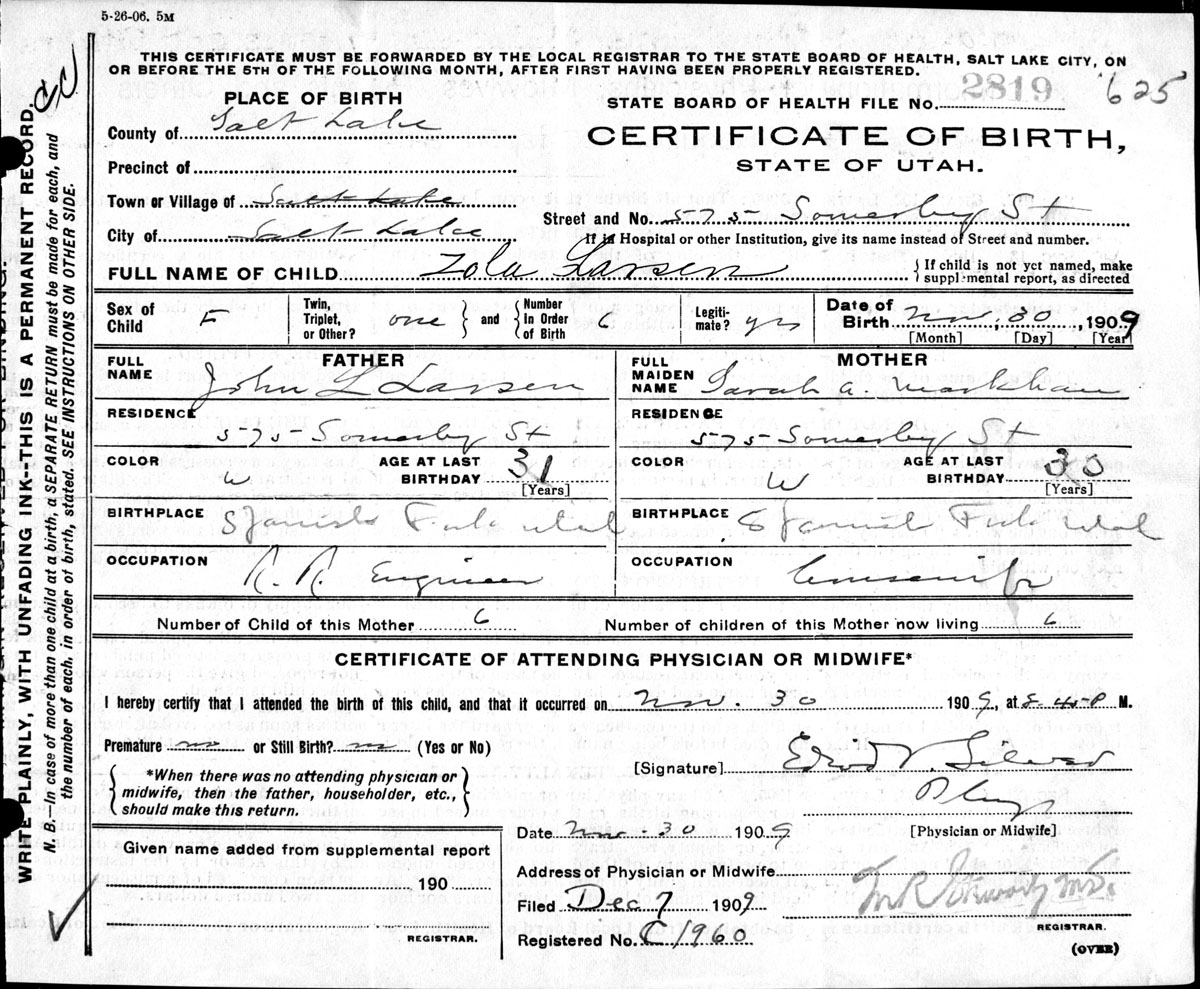 5-26-06. 5M
THIS CERTIFICATE MUST BE FORWARDED BY THE LOCAL REGISTRAR TO THE STATE BOARD OF HEALTH, SALT LAKE CITY, ON
OR BEFORE THE 5TH OF THE FOLLOWING MONTH, AFTER FIRST HAVING BEEN PROPERLY REGISTERED.
PLACE OF BIRTH
STATE BOARD OF HEALTH FILE No. 2819 625
County of Salt Lake
CERTIFICATE OF BIRTH,
STATE OF UTAH.
Precinct of
Town or Village of Salt Lake
Street and No. 575 Somerby St
City of Salt Lake
If in Hospital or other Institution, give its name instead of Street and number.
FULL NAME OF CHILD Zola Larsen { If child is not yet named, make
supplemental report, as directed
Sex of Child F Twin, Triplet, or Other? one } and { Number In Order of Birth Legiti-mate? yes Date of Birth Nov. 30, 1909
[Month] [Day] [Year]
FATHER
MOTHER
FULL NAME John L Larsen
FULL MAIDEN NAME Sarah A. Markham
RESIDENCE 575 Somerby St
RESIDENCE 575 Somerby St
COLOR W AGE AT LAST BIRTHDAY 31 [Years]
COLOR W AGE AT LAST BIRTHDAY 30 [Years]
BIRTHPLACE Spanish Fork Utah
BIRTHPLACE Spanish Fork Utah
OCCUPATION R. R. Engineer
OCCUPATION
Number of Child of this Mother 6 Number of children of this Mother now living 6
CERTIFICATE OF ATTENDING PHYSICIAN OR MIDWIFE*
I hereby certify that I attended the birth of this child, and that it occurred on Nov. 30 1909, at 8.45 P M.
Premature no or Still Birth? no (Yes or No)
[Signature]
{ *When there was no attending physician or
midwife, then the father, householder, etc.,
should make this return. }
[Physician or Midwife]
Date Nov. 30 1909
Given name added from supplemental report
190
REGISTRAR.
Address of Physician or Midwife
Filed Dec 7 1909
Registered No. C1960
M.D.
REGISTRAR.
(OVER)
WRITE PLAINLY, WITH UNFADING INK--THIS IS A PERMANENT RECORD.
N. B.—In case of more than one child at a birth, a SEPARATE RETURN must be made for each, and
the number of each, in order of birth, stated. SEE INSTRUCTIONS ON OTHER SIDE.